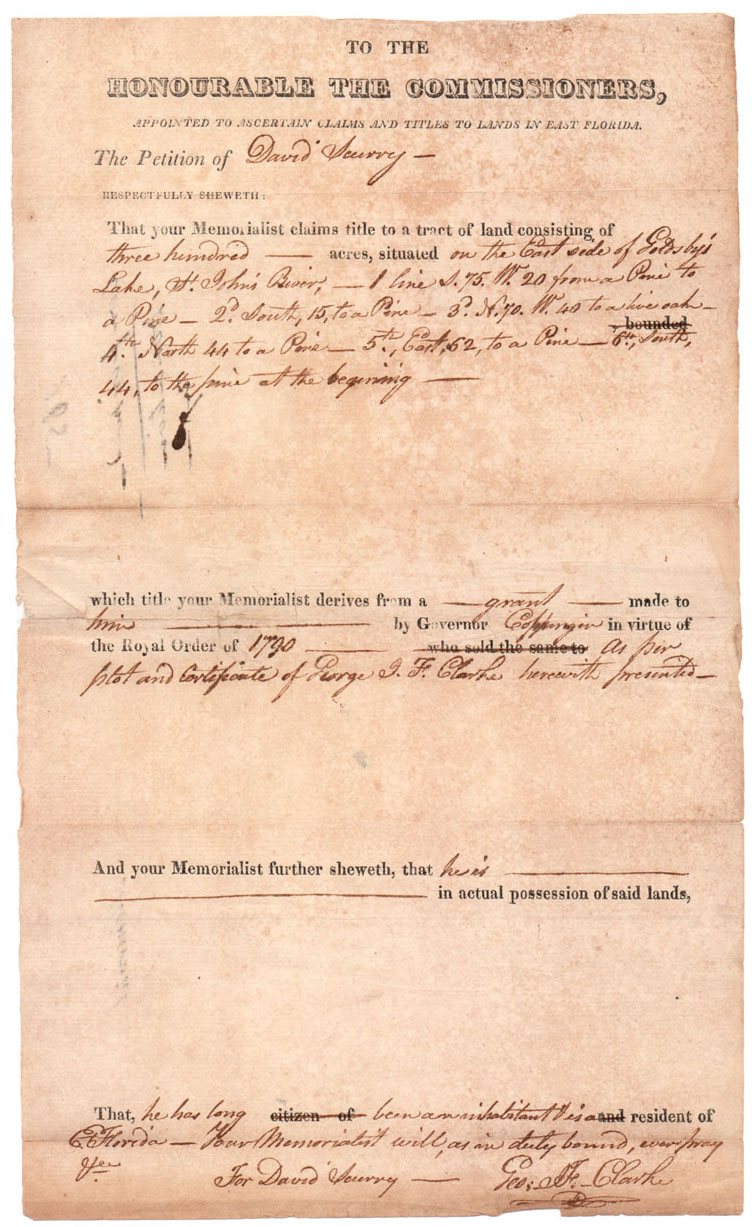 TO THE
HONOURABLE THE COMMISSIONERS,
APPOINTED TO ASCERTAIN CLAIMS AND TITLES TO LANDS IN EAST FLORIDA.
The Petition of David Scurry —
RESPECTFULLY SHEWETH:
That your Memorialist claims title to a tract of land consisting of
three hundred — acres, situated on the East side of Goldsby's
Lake, St. John's River, — 1 line S. 75. W. 20 from a Pine to
a Pine — 2d. South, 15, to a Pine — 3d. N. 70. W. 40 to a live oak —
, bounded
4th. North 44 to a Pine — 5th, East, 52, to a Pine — 6th, South,
44, to the pine at the begining —
which title your Memorialist derives from a — grant — made to
him — by Governor Coppinger in virtue of
the Royal Order of 1790 — who sold the same to As per
plot and Certificate of George J. F. Clarke herewith presented —
And your Memorialist further sheweth, that he is —
— in actual possession of said lands,
That, he has long citizen of been an inhabitant & is a and resident of
E. Florida — Your Memorialist will, as in duty bound, ever pray
&ce
For David Scurry — Geo: J. F. Clarke